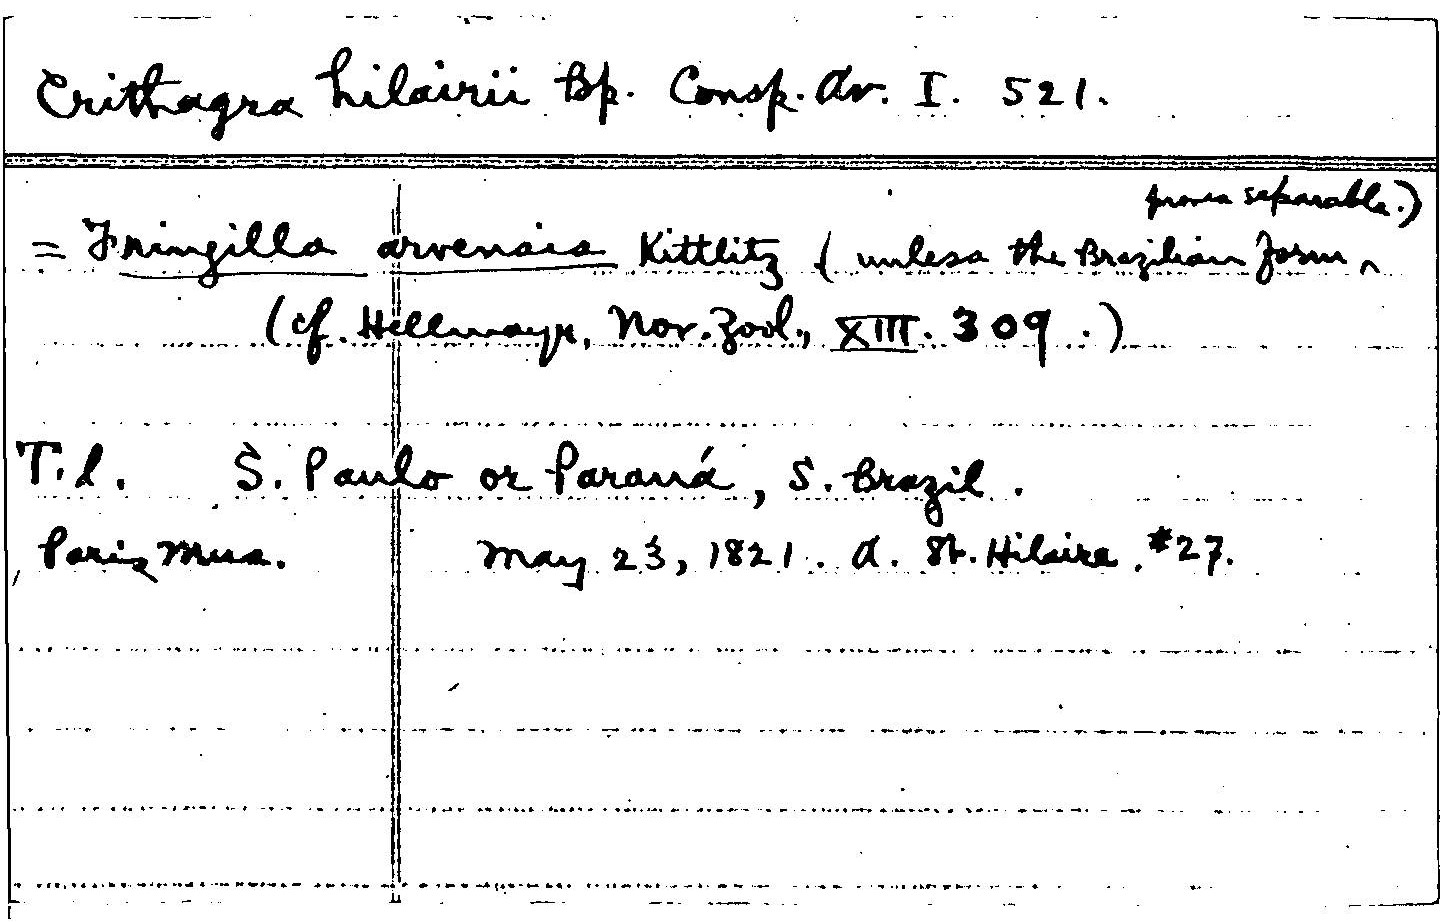 Crithagra hilairii Bp. Consp. Av. I. 521.
= Fringilla arvensis Kittlitz (unless the Brazilian form ^ proves separable.)
(cf. Hellmayr, Nov. Zool., XIII. 309.)
T.l. S. Paulo or Paraná, S. Brazil.
Paris Mus. May 23, 1821. A. St. Hilaire. #27.